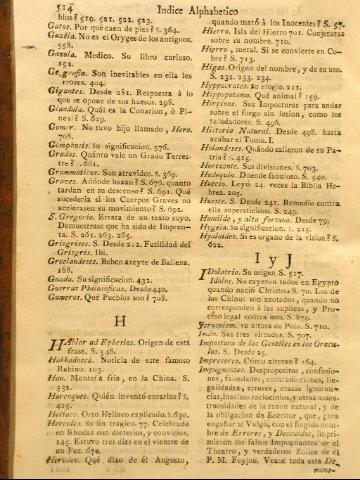 514 Indice Alphabetico
blos? 519. 521. 522. 523.
Gatos. Por qué caen de pies? S. 364.
Gazela. No es el Oryges de los antiguos.
558.
Gazola. Medico. Su libro curioso.
152.
Geografia. Son inevitables en ella los
errores. 404.
Gigantes. Desde 281. Respuesta á lo
que se opone de sus huesos. 298.
Glandula. Quál es la Conarion, ò Pi-
neal? S. 629.
Gomer. No tuvo hijo llamado, Hero.
708.
Gimposophis. su significacion. 576.
Grados. Quánto vale un Grado Terres-
tre? 661.
Grammaticos. Son atrevidos. S. 369.
Graves. Adónde baxan? S. 676. quanto
tardan en su descenso? S. 691. Qué
sucederia si los Cuerpos Graves no
acelerasen su movimiento? S. 692.
S. Gregorio. Errata de un texto suyo.
Demuestrase que ha sido de Impren-
ta. S. 261. 263. 265.
Grisgrises. S. Desde 212. Futilidad del
Grisgris. Ibi.
Groelandeses. Beben azeyte de Ballena.
188.
Guada. Su significacion. 432.
Guerras Philosoficas. Desde 440.
Gumeros. Qué Pueblos son? 708.
H
HAblar ad Ephesios. Origen de está
frase. S. 548.
Hakkadosch. Noticia de este famoso
Rabino. 103.
Han. Montaña fria, en la China. S.
332.
Harengues. Quién inventó curarlos? S.
425.
Heliaco. Orto Heliaco explicado. S. 630.
Hercules. Su fin tragico. 77. Celebrado
en Rhodas con dicterios, y convicios.
145. Estuvo tres dias en el vientre de
un Pez. 670.
Herodes. Qué dixo de él Augusto,
quando mató á los Inocentes? S. 57.
Hierro. Isla del Hierro 701. Conjeturas
sobre su nombre. 710.
Hierro, metal. Si se convierte en Co-
bre? S. 713.
Higas. Origen del nombre, y de su uso.
S. 232. 233. 234.
Hippocrates. Su elogio. 211.
Hippopotamo. Qué animal? 159.
Hirpinos. Sus Imposturas para andar
sobre el fuego sin lesion, como los
saludadores. S. 496.
Historia Natural. Desde 498. hasta
acabar el Tomo. I.
Holandeses. Quándo salieron de su Pa-
tria? S. 415.
Horizonte. Sus divisiones. S. 703.
Hudequio. Doende fabuloso. S. 540.
Huecio. Leyó 24. veces la Biblia He-
brea. 205.
Hueste. S. Desde 241. Remedio contra
ella supersticioso. S. 249.
Humilde, y alta fortuna. Desde 79.
Hygeia. Su significacion. 1. 215.
Hyaloides. Si es organo de la vision? S.
622.
I y J
IDolatria. Su origen. S. 517.
Idolos. No cayeron todos en Egypto
quando nació Christo. S. 70. Los de
los Chinos son azotados, quando no
corresponden á las suplicas, y Pro-
ceso legal contra uno. S. 870.
Jerusalem. su altura de Polo. S. 710.
Iman. Sus tres virtudes. S. 707.
Impostura de los Gentiles en los Oracu-
los. S. Desde 25.
Impresores. Cómo alteran? 164.
Impugnantes. Despropositos, confusio-
nes, faciedades, contradicciones, lie-
gedades, errores, crasas ignoran-
cias, insulsos raciocinios, y otras mons-
truosidades de la razon natural, y de
la obligacion de Escritor, que, para
engañar al Vulgo, con el fingido nom-
bre de Errores, y Descuidos, impri-
mieron los falsos Impugnantes de el
Theatro, y verdaderos Zoilos de el
P. M. Feyjoo. Vease toda esta De-
mons-